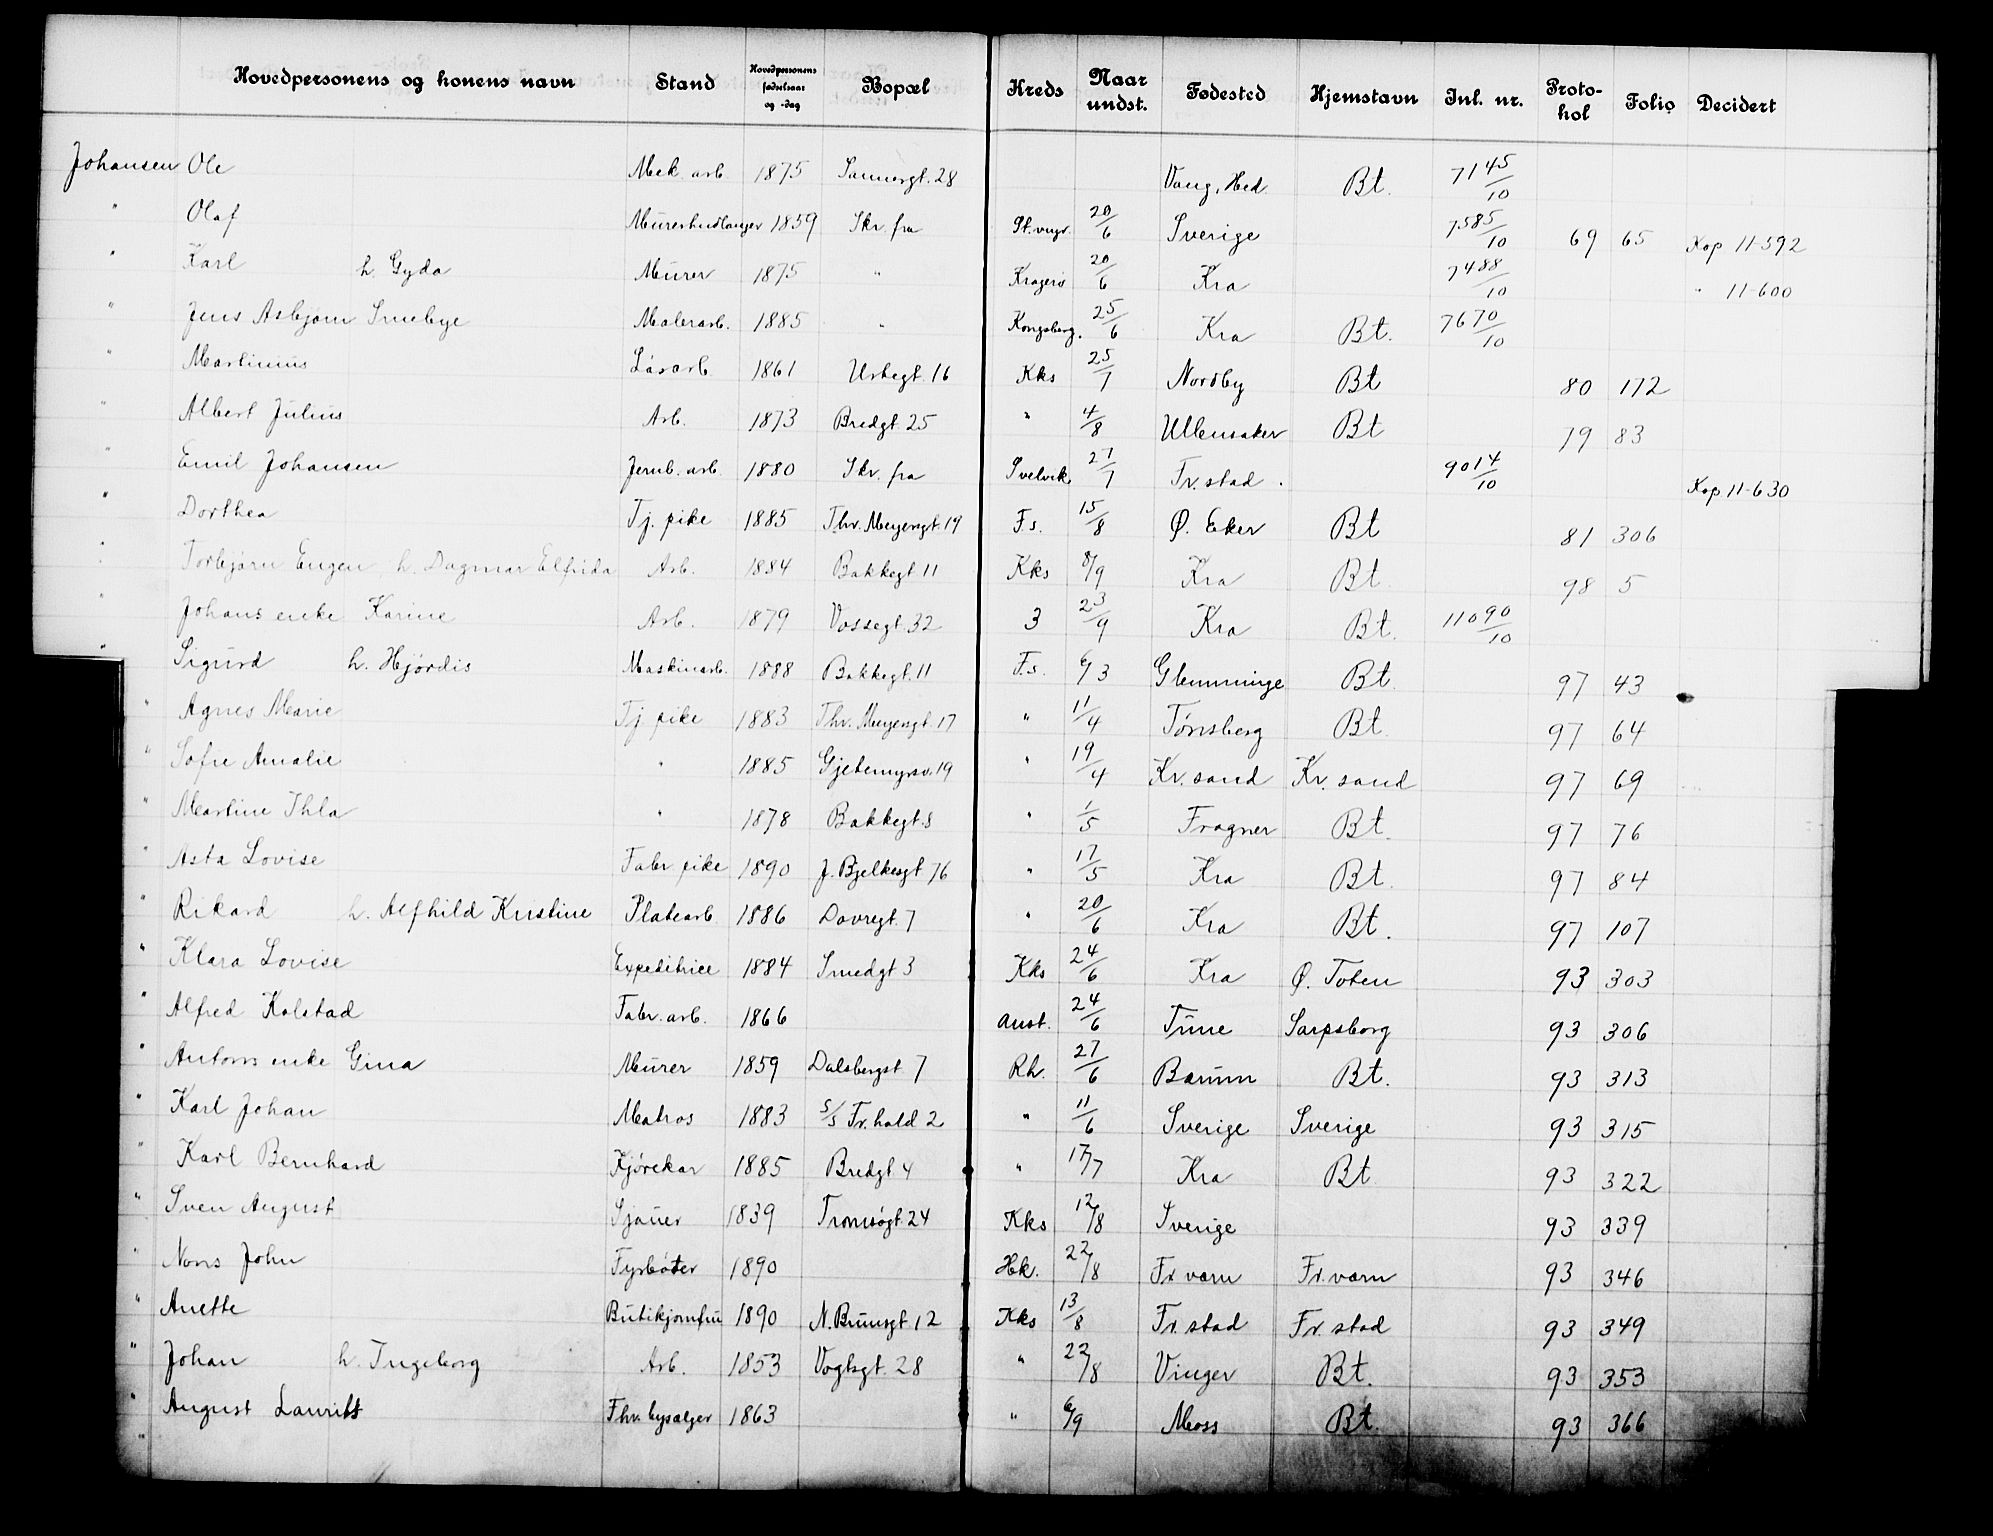 Hovedpersonens og konens navn Stand Hovedpersonens fødselsaar og -dag Bopæl Kreds Naar undst. Fødested Hjemstavn Inl. nr. Protokol Folio Decidert
Johansen Ole Mek. arb. 1875 Sannergt. 28 Vang, Hed. Bt. 7145/10
" Olaf Murerhandlanger 1859 Skr. fra 20/6 Sverige 7585/10 69 65 Kop 11-592
" Karl h. Gyda Murer 1875 " Kragerø 20/6 Kra 7488/10 " 11-600
" Jens Asbjørn Smebye Malerarb. 1885 " Kongsberg. 25/6 Kra Bt. 7670/10
" Martinius Løsarb. 1861 Urtegt. 16 Kks 25/7 Nordby Bt 80 172
" Albert Julius Arb. 1873 Bredgt. 25 " 4/8 Ullensaker Bt 79 83
" Emil Johansen Jernb. arb. 1880 Skr. fra Svelvik 27/7 Fr.stad. 9014/10 Kop 11-630
" Dorthea Tj. pike 1885 Thv. Meyersgt. 19 F.s. 15/8 Ø. Eker Bt 81 306
" Torbjørn Eugen h. Dagmar Elfrida Arb. 1884 Bakkegt 11 Kks 8/9 Kra Bt. 98 5
" Johans enke Karine Arb. 1879 Vossegt. 32 3 23/9 Kra Bt. 11090/10
" Sigurd h. Hjørdis Maskinarb. 1888 Bakkegt. 11 F.s. 6/3 Glemminge Bt. 97 43
" Agnes Marie Tj. pike 1883 Thv. Meyersgt. 17 " 11/4 Tønsberg Bt. 97 64
" Sofie Amalie " 1885 Gjetemyrsv. 19 " 19/4 Kr. sand Kr. sand 97 69
" Martine Thla " 1878 Bakkegt 8 " 1/5 Frogner Bt. 97 76
" Asta Lovise Fabr pike 1890 J. Bjelkesgt 76 " 17/5 Kra Bt. 97 84
" Rikard h. Alfhild Kristine Platearb. 1886 Dovregt. 7 " 20/6 Kra Bt. 97 107
" Klara Lovise Expeditrice 1884 Smedgt 3 Kks 24/6 Kra Ø. Toten 93 303
" Alfred Kolstad Fabr. arb. 1866 Anst. 24/6 Tune Sarpsborg 93 306
" Antons enke Gina Murer 1859 Dalsbergst 7 Rh. 27/6 Bærum Bt. 93 313
" Karl Johan Matros 1883 S/S Fr.hald 2 " 11/6 Sverige Sverige 93 315
" Karl Bernhard Kjørekar 1885 Bredgt 4 " 17/7 Kra Bt 93 322
" Sven August Sjauer 1839 Tromsøgt. 24 Kks 12/8 Sverige 93 339
" Nons John Fyrbøter 1890 Hk. 22/8 Fr. værn Fr. værn 93 346
" Anette Butikjomfru 1890 N. Brunsgt 12 Kks 13/8 Fr. stad Fr. stad 93 349
" Johan h. Ingeborg Arb. 1853 Vogtsgt. 28 " 22/8 Vinger Bt. 93 353
" August Laurits Fhv. bysælger 1863 " 6/9 Moss Bt. 93 366
"